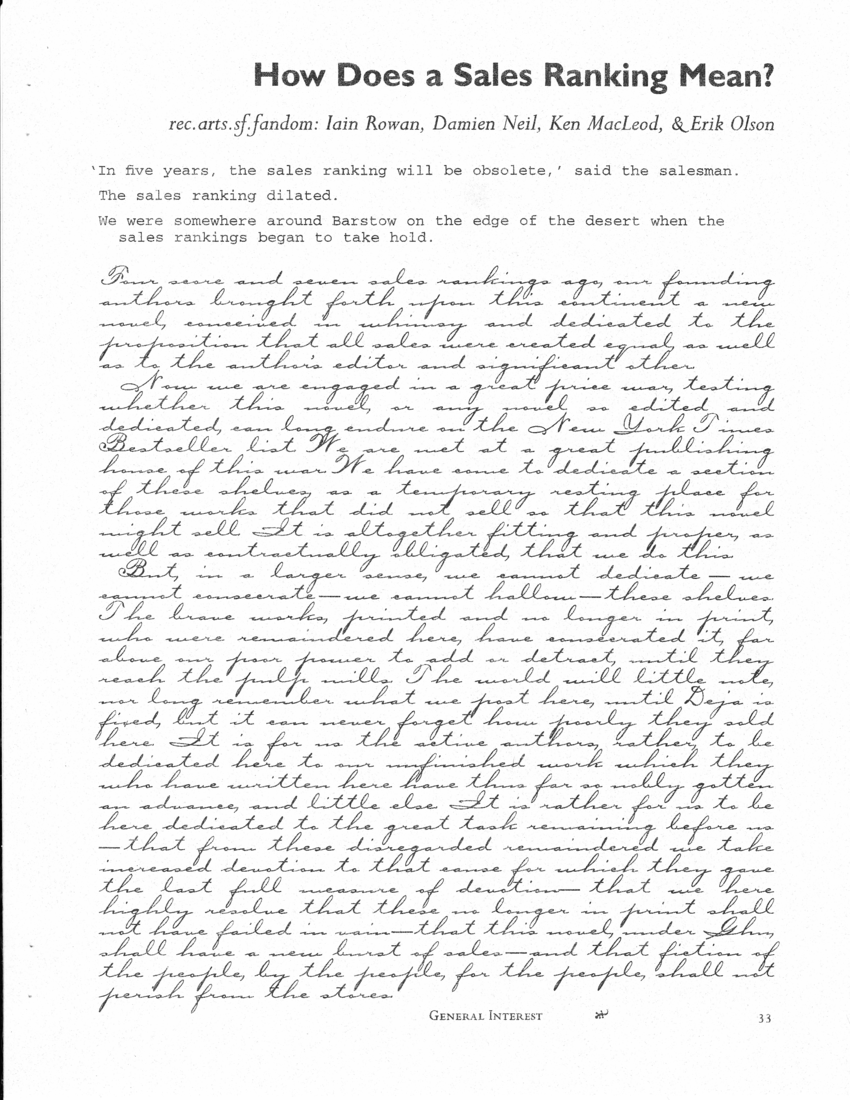 How Does a Sales Ranking Mean?
rec.arts.sf.fandom: Iain Rowan, Damien Neil, Ken MacLeod, & Erik Olson
‘In five years, the sales ranking will be obsolete,’ said the salesman.
The sales ranking dilated.
We were somewhere around Barstow on the edge of the desert when the
sales rankings began to take hold.
Four score and seven sales rankings ago, our founding
authors brought forth upon this continent a new
novel, conceived in whimsy and dedicated to the
proposition that all sales were created equal, as well
as to the author's editor and significant other.
Now we are engaged in a great price war, testing
whether this novel, or any novel so edited and
dedicated, can long endure on the New York Times
Bestseller list. We are met at a great publishing
house of this war. We have come to dedicate a section
of these shelves, as a temporary resting place for
those works that did not sell so that this novel
might sell. It is altogether fitting and proper, as
well as contractually obligated, that we do this.
But, in a larger sense, we cannot dedicate — we
cannot consecrate—we cannot hallow—these shelves.
The brave works, printed and no longer in print,
who were remaindered here, have consecrated it, far
above our poor power to add or detract, until they
reach the pulp mills. The world will little note,
nor long remember what we post here, until Deja is
fixed, but it can never forget how poorly they sold
here. It is for us the active authors, rather, to be
dedicated here to our unfinished work which they
who have written here have thus far so nobly gotten
an advance, and little else. It is rather for us to be
here dedicated to the great task remaining before us
—that from these disregarded remaindered we take
increased devotion to that cause for which they gave
the last full measure of devotion— that we here
highly resolve that these no longer in print shall
not have failed in vain—that this novel, under Ghu,
shall have a new burst of sales—and that fiction of
the people, by the people, for the people, shall not
perish from the stores.
General Interest 33